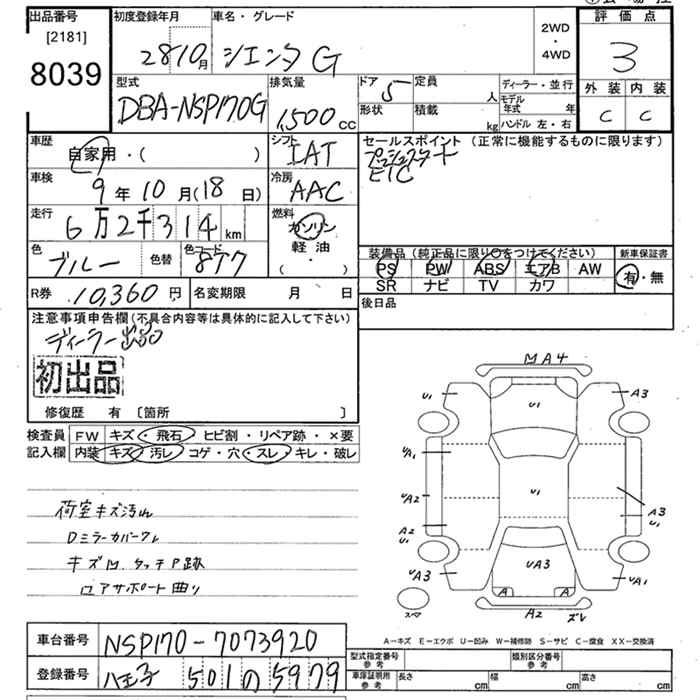 出品番号
[2181]
8039
初度登録年月
2810月
車名・グレード
シエンタ G
2WD
・
4WD
評価点
3
外装 内装
C C
型式
DBA-NSP170G
排気量
1,500 cc
ドア 5
定員 人
形状
積載 kg
ディーラー・並行
モデル年式 年
ハンドル 左・右
車歴
自家用・( )
シフト
IAT
セールスポイント (正常に機能するものに限ります)
プッシュスタート
ETC
車検
9年10月(18日)
冷房
AAC
走行
6万2千314km
燃料
ガソリン
軽油
・
( )
色
ブルー
色替
色コード
8T7
装備品(純正品に限り○をつけてください)
PS PW ABS エアB AW
SR ナビ TV カワ
新車保証書
有・無
R券 10,360円
名変期限 月 日
後日品
注意事項申告欄(不具合内容等は具体的に記入して下さい)
ディーラー出品
初出品
修復歴 有 〔箇所 〕
検査員 FW キズ・飛石・ヒビ割・リペア跡・×要
記入欄 内装 キズ・汚レ コゲ・穴・スレ・キレ・破レ
荷室キズ汚れ
Dミラーカバーワレ
キズ凹.タッチP跡
ロアサポート曲り
MA4
U1
U1
A3
UA1
UA2
U1
A2
U1
A3
U1
UA3
UA3
A
A
UA1
スペア
A2
ズレ
A－キズ E－エクボ U－凹み W－補修跡 S－サビ C－腐食 XX－交換済
車台番号 NSP170-7073920
登録番号 八王子 501 の 5979
型式指定番号
参考
類別区分番号
参考
車庫証明用
参考
長さ cm
幅 cm
高さ cm